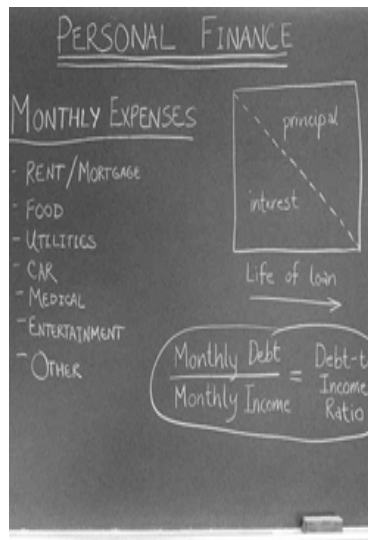 PERSONAL FINANCE
MONTHLY EXPENSES
- RENT/MORTGAGE
- FOOD
- UTILITIES
- CAR
- MEDICAL
- ENTERTAINMENT
- OTHER
principal
interest
Life of loan
Monthly Debt
Monthly Income
=
Debt-t
Income
Ratio